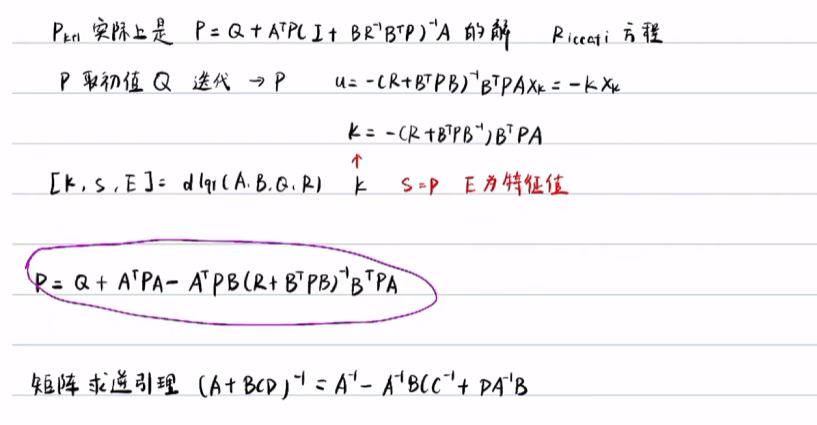 Pₖ₊₁ 实际上是 P = Q + AᵀP(I + BR⁻¹BᵀP)⁻¹A 的解 Riccati 方程
P 取初值 Q 迭代 → P u = -(R+BᵀPB)⁻¹BᵀPAxₖ = -kxₖ
k = -(R+BᵀPB⁻¹)BᵀPA
↑
[k, S, E] = dlqr(A.B.Q.R) k S=P E为特征值
P = Q + AᵀPA - AᵀPB(R+BᵀPB)⁻¹BᵀPA
矩阵求逆引理 (A+BCD)⁻¹ = A⁻¹ - A⁻¹B(C⁻¹ + DA⁻¹B